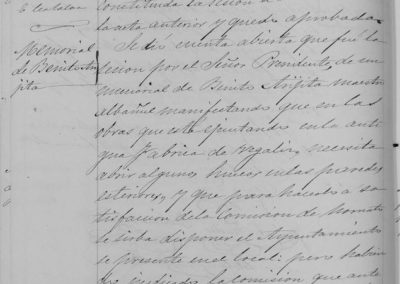 Memorial
de Benito Ar
pita
la acta anterior y quedó aprobada.
Se dió cuenta abierta que fué la
sesion por el Señor Presidente, de un
memorial de Benito Arpita maestro
albañil manifestando que en las
obras que está ejecutando en la anti
gua Fabrica de Regaliz, necesita
abrir algunos huecos en las paredes
esteriores, y que para hacerlo a sa
tisfaccion de la Comision de Hornato
se sirva disponer el Ayuntamiento
se presente en el local: pero habien
indicado la comision que ante